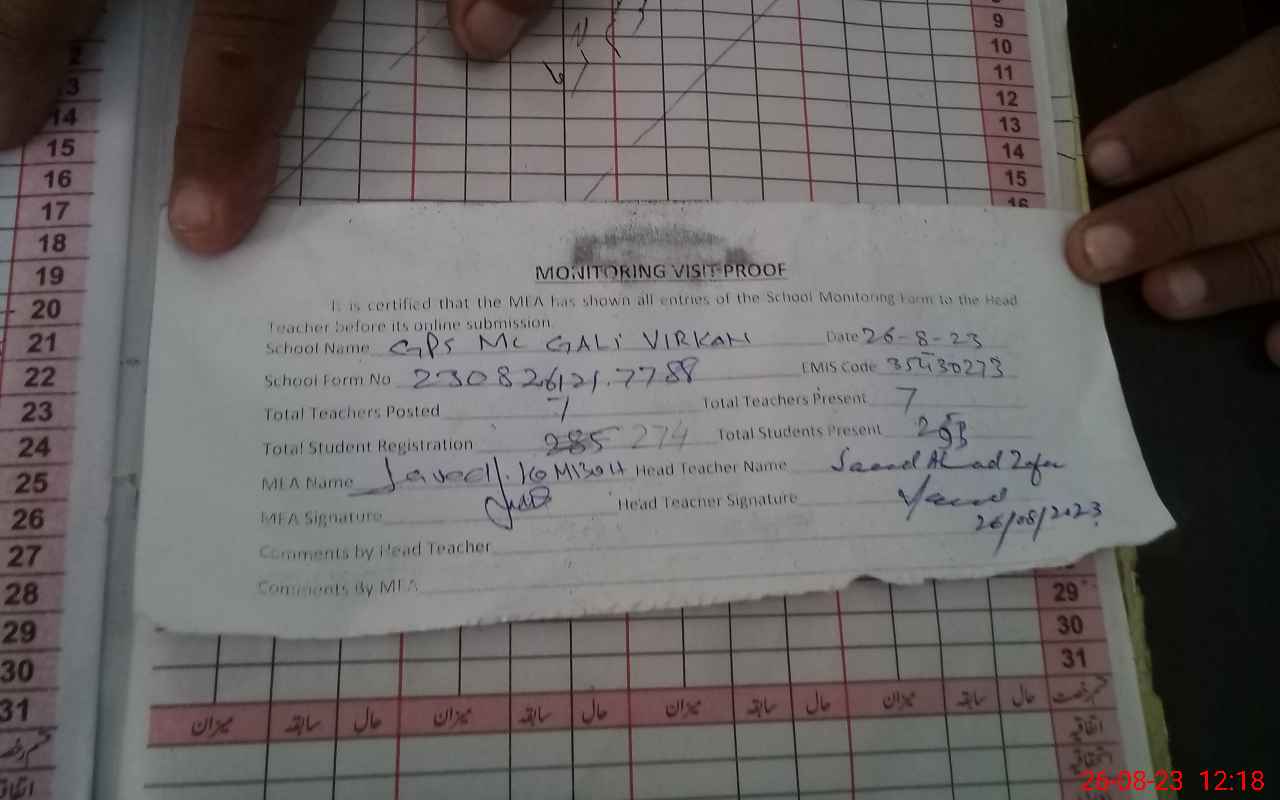 9
10
11
12
13
14
15
16
13
14
15
16
17
18
19
20
21
22
23
24
25
26
27
28
29
30
31
MONITORING VISIT PROOF
It is certified that the MEA has shown all entries of the School Monitoring Form to the Head
Teacher before its online submission.
School Name GPS MC GALI VIRKAN Date 26-8-23
School Form No EMIS Code 35430273
Total Teachers Posted 7 Total Teachers Present 7
Total Student Registration 285 274 Total Students Present
MEA Name Javed Head Teacher Name Saeed Ahmad Zafar
MEA Signature Head Teacher Signature
26/08/2023
Comments by Head Teacher
Comments By MEA
29
30
31
میزان سابقہ حال میزان سابقہ حال میزان سابقہ حال میزان سابقہ حال قسم رخصت
اتفاقیہ
26-08-23 12:18